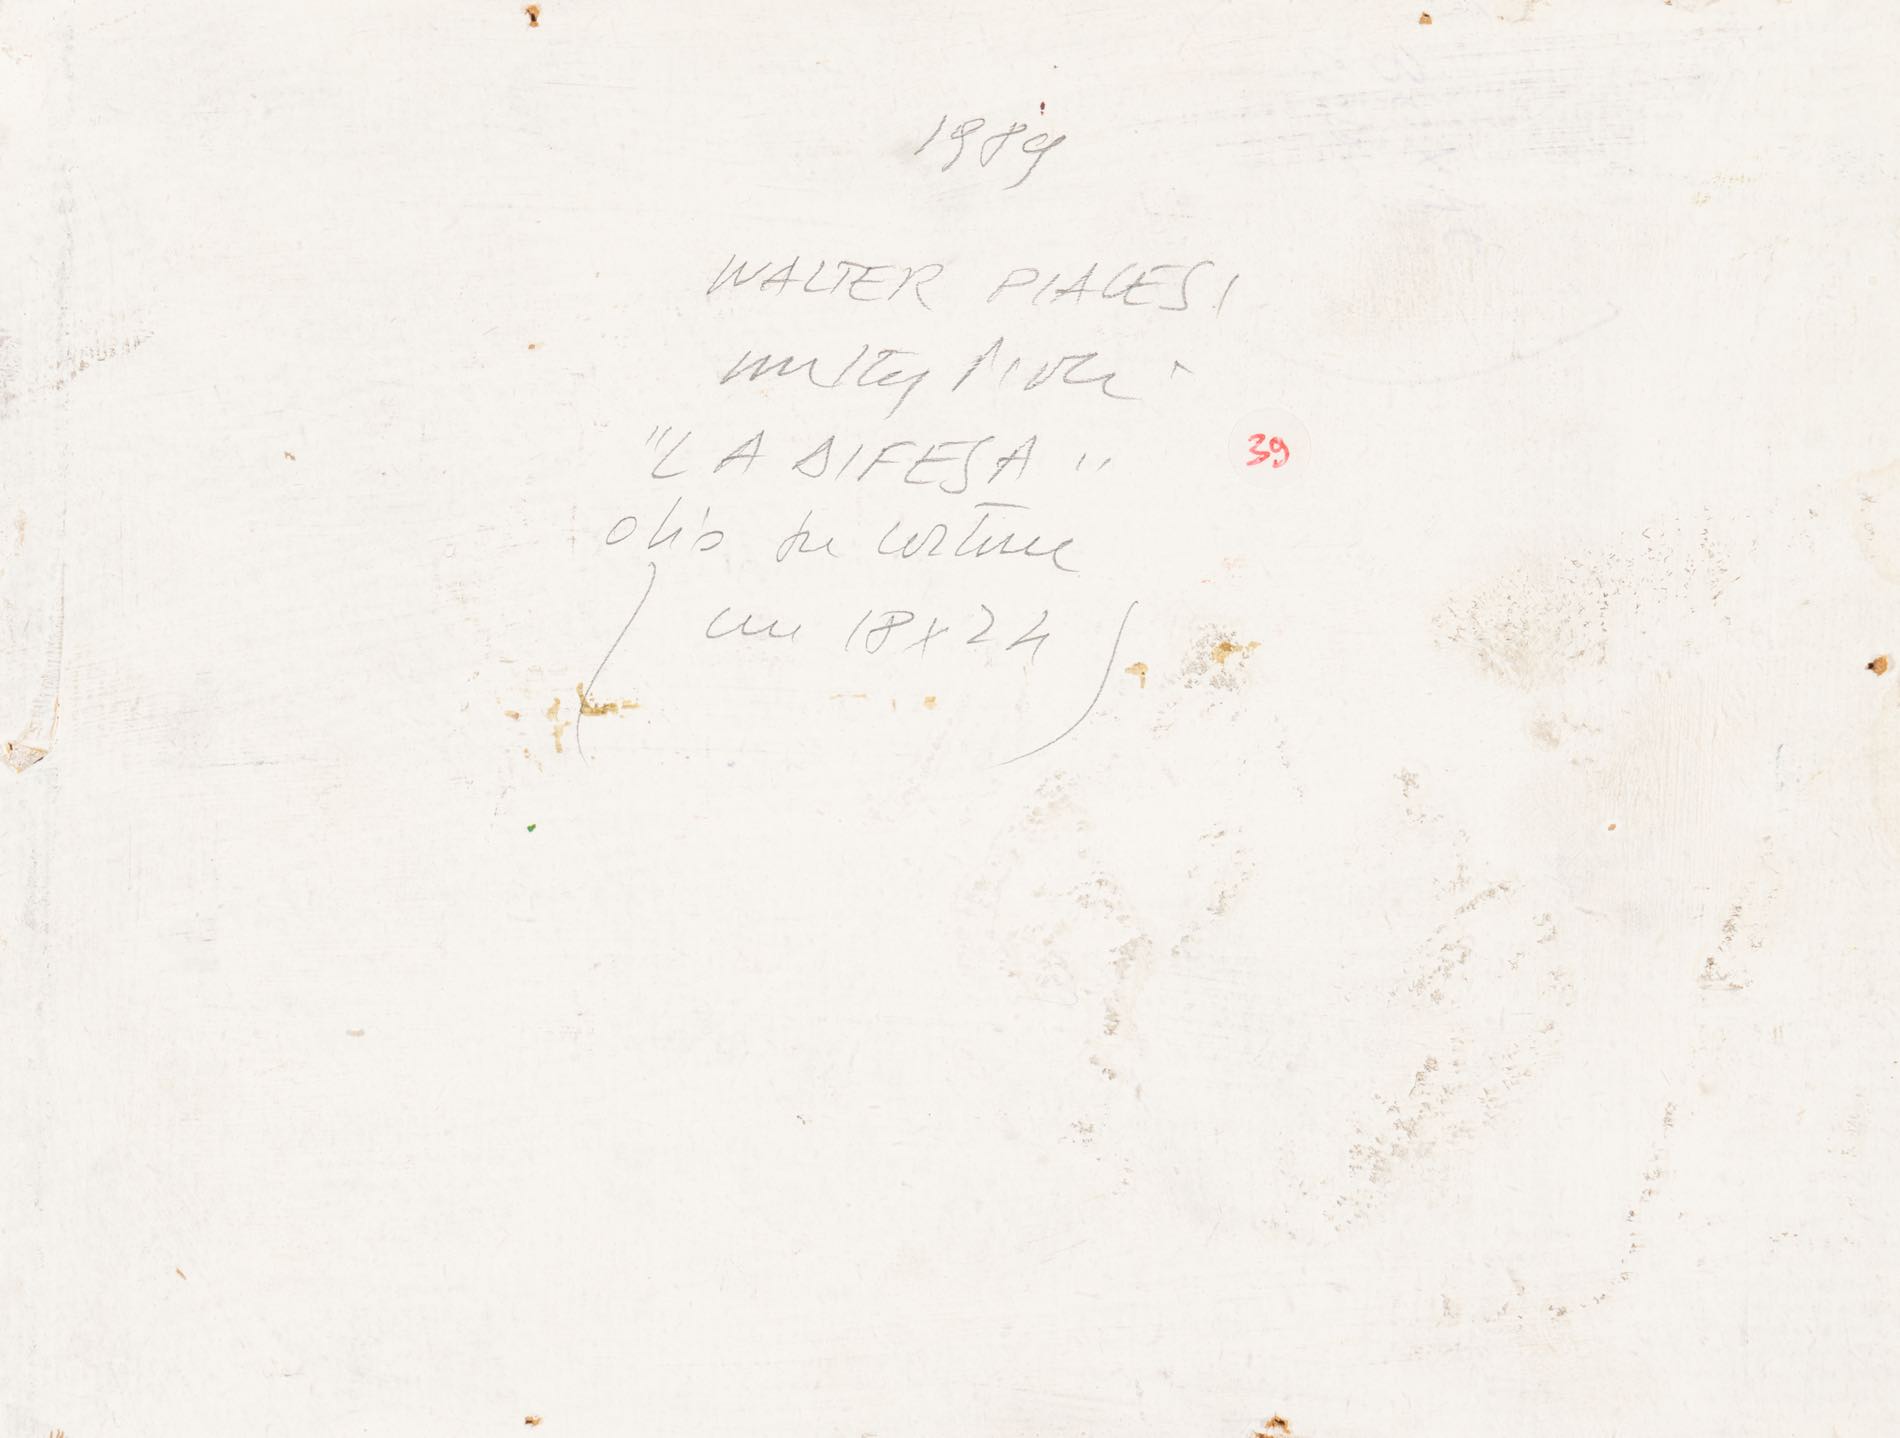 1989
WALTER PIACESI
"LA DIFESA"
39
olio su cartone
cm 18x24